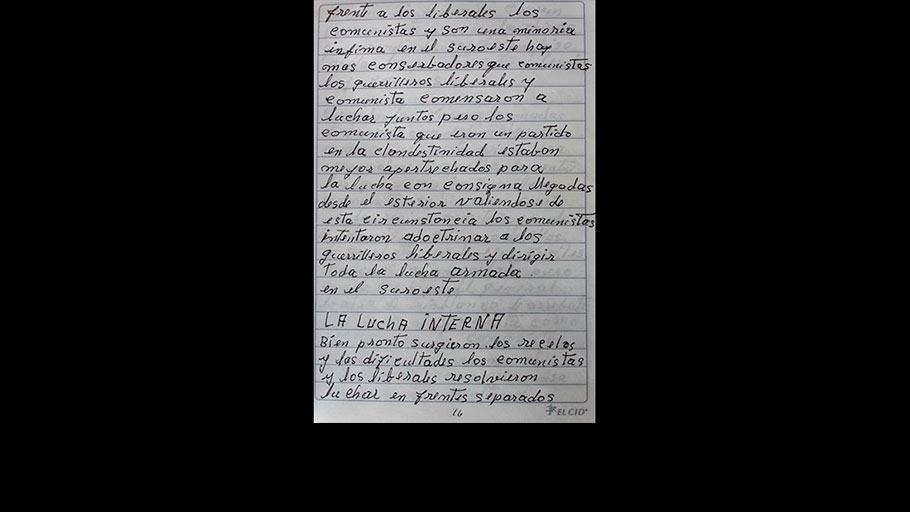 frente a los liberales los
comunistas y son una minoria
infima en el suroeste hay
mas conserbadores que comunistas
los guerrilleros liberales y
comunista comensaron a
luchar juntos pero los
comunista que eran un partido
en la clandestinidad estaban
mejor apertrechados para
la lucha con consigna llegadas
desde el esterior valiendose de
esta circunstancia los comunistas
intentaron adoctrinar a los
guerrilleros liberales y dirigir
toda la lucha armada
en el suroeste
LA LUCHA INTERNA
Bien pronto surgieron los recelos
y las dificultades los comunistas
y los liberales resolvieron
luchar en frentes separados
16
EL CID